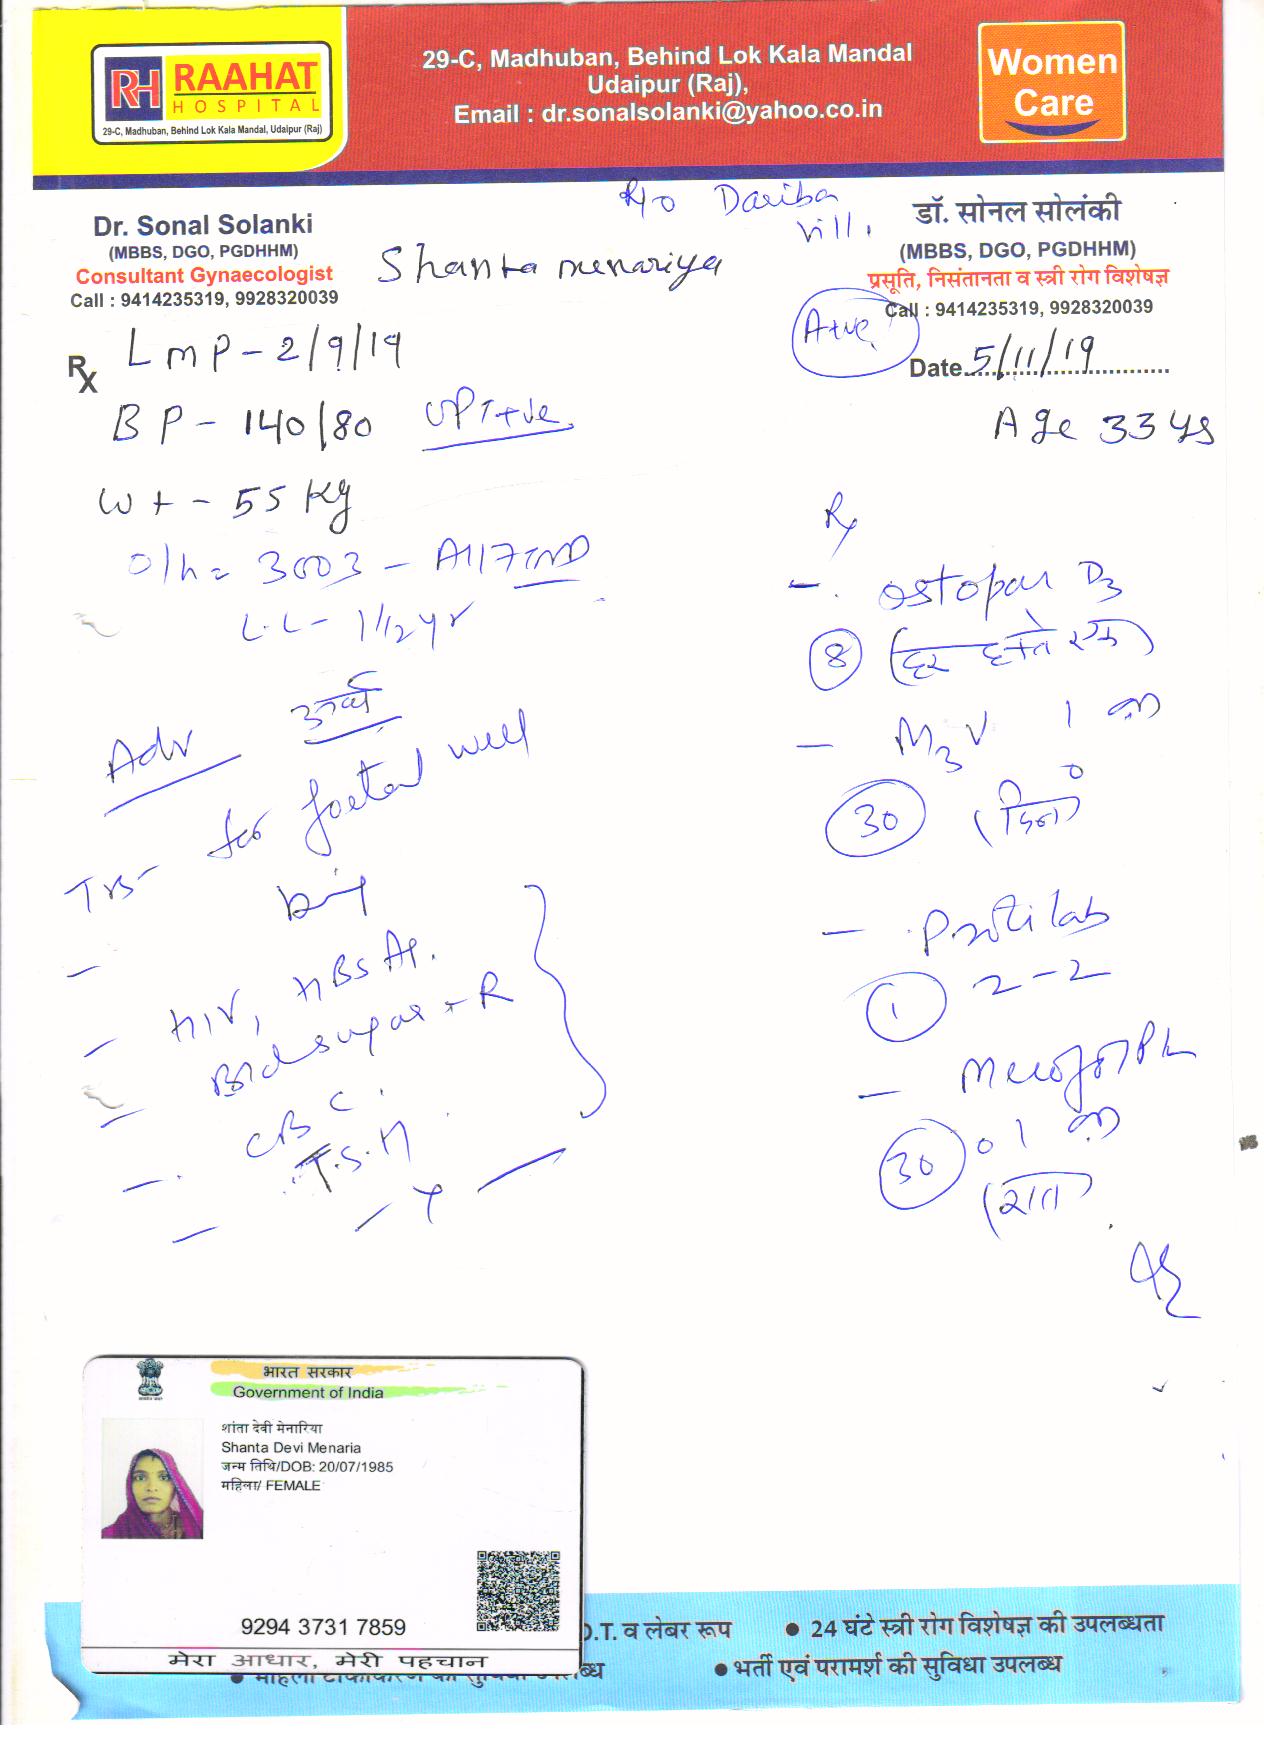 RH RAAHAT
HOSPITAL
29-C, Madhuban, Behind Lok Kala Mandal, Udaipur (Raj)
29-C, Madhuban, Behind Lok Kala Mandal
Udaipur (Raj),
Email : dr.sonalsolanki@yahoo.co.in
Women
Care
R/o Dariba
Vill.
Dr. Sonal Solanki
(MBBS, DGO, PGDHHM)
Consultant Gynaecologist
Call : 9414235319, 9928320039
Shanta menariya
डॉ. सोनल सोलंकी
(MBBS, DGO, PGDHHM)
प्रसूति, निसंतानता व स्त्री रोग विशेषज्ञ
Call : 9414235319, 9928320039
A+ve
Date 5/11/19
Rx
LmP - 2/9/19
BP - 140/80 UPT+ve
Age 33 ys
Wt - 55 Kg
O/h = - All FTND
L.L - 1 1/2 yr
Adv
TVS - for foetal well
being
- HIV, HBsAg.
- Bld sugar - R
- CBC.
- T.S.H
Rx
- Ostopan D3
8 (हर हफ्ते एक)
- 1
30 (दिन)
-
1 2-2
-
30 0 1
(रात)
भारत सरकार
Government of India
शांता देवी मेनारिया
Shanta Devi Menaria
जन्म तिथि/DOB: 20/07/1985
महिला/ FEMALE
9294 3731 7859
मेरा आधार, मेरी पहचान
O.T. व लेबर रूप
• 24 घंटे स्त्री रोग विशेषज्ञ की उपलब्धता
• भर्ती एवं परामर्श की सुविधा उपलब्ध